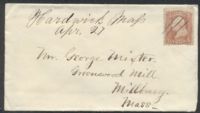 Hardwick Mass
Apr. 27
Mr. George Mixter,
Greenwood Mill
Millbury
Mass